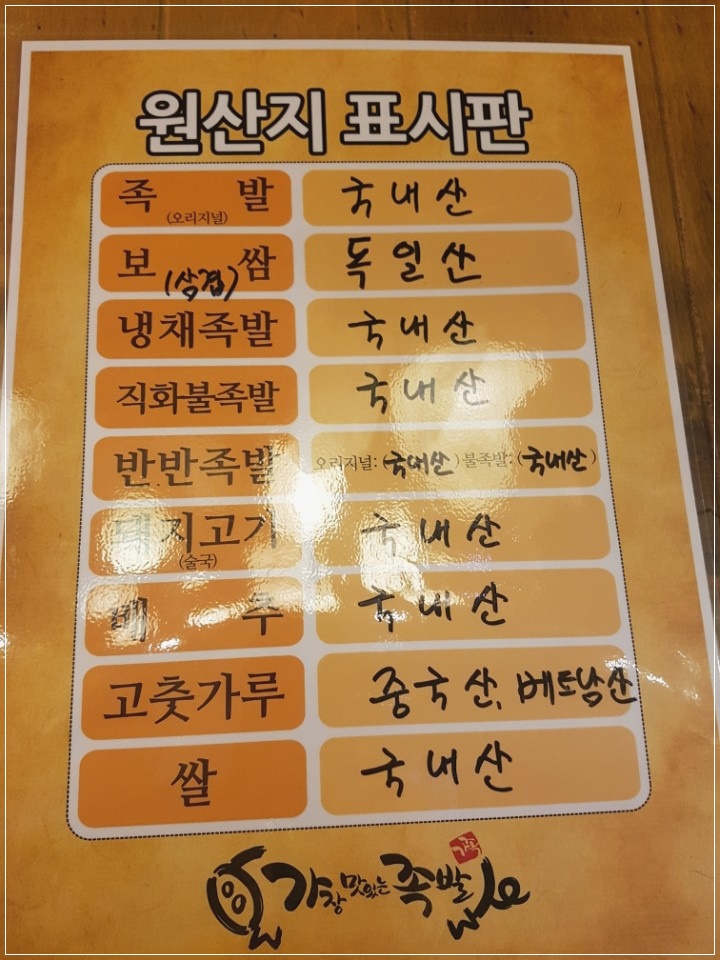 원산지 표시판
족발 국내산
(오리지널)
보쌈 독일산
(삼겹)
냉채족발 국내산
직화불족발 국내산
반반족발 오리지널: (국내산) 불족발: (국내산)
돼지고기 국내산
(술국)
배추 국내산
고춧가루 중국산, 베트남산
쌀 국내산
가장 맛있는 족발
가족